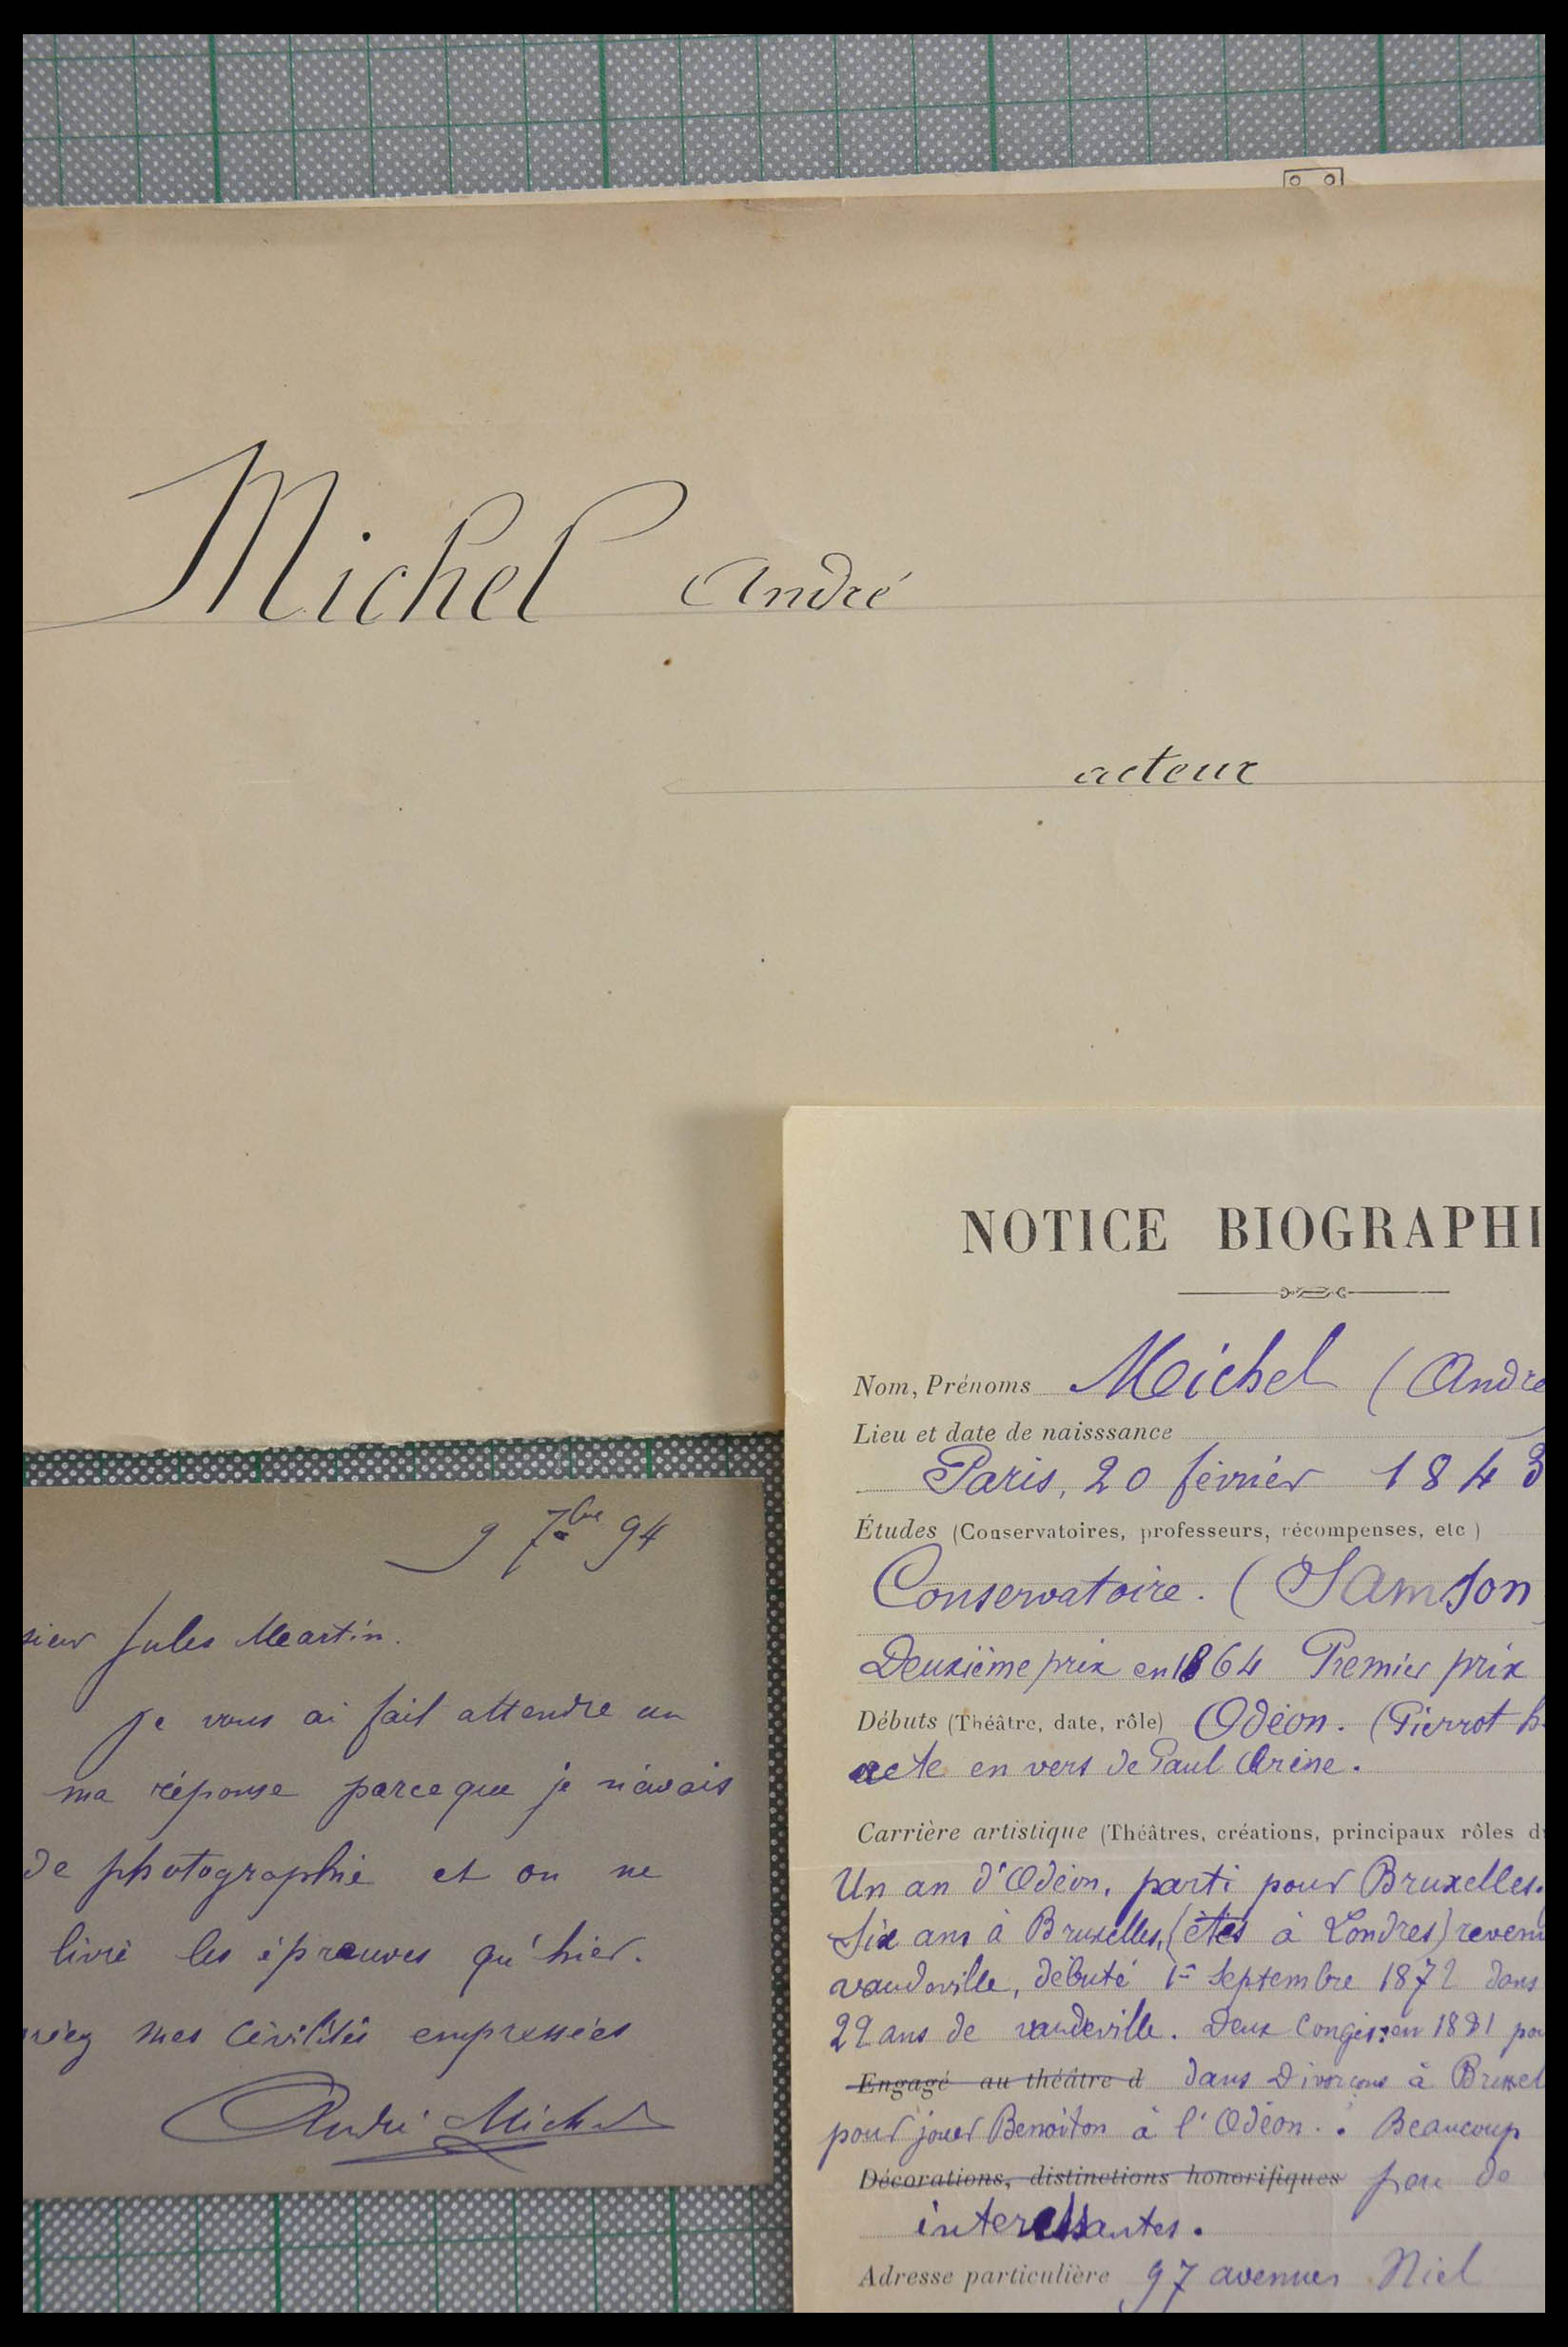 Michel André
acteur
9 7bre 94
sieur Jules Martin.
Je vous ai fait attendre un
ma réponse parceque je n'avais
de photographie et on ne
livré les épreuves qu'hier.
mes civilités empressées
André Michel
NOTICE BIOGRAPHI
Nom, Prénoms Michel (André
Lieu et date de naisssance
Paris, 20 février 1843
Études (Conservatoires, professeurs, récompenses, etc )
Conservatoire. (Samson
Deuxième prix en 1864 Premier prix
Débuts (Théâtre, date, rôle) Odéon. (Pierrot h
acte en vers de Paul Arène.
Carrière artistique (Théâtres, créations, principaux rôles d
Un an d'Odéon, parti pour Bruxelles.
Six ans à Bruxelles, (étés à Londres) revenu
vaudeville, débuté 1er Septembre 1872 dans
22 ans de vaudeville. Deux congés: en 1881 pou
Engagé au théâtre d dans Divorçons à Bruxel
pour jouer Benoiton à l'Odéon. Beaucoup
Décorations, distinctions honorifiques peu de
interessantes.
Adresse particulière 97 avenue Niel